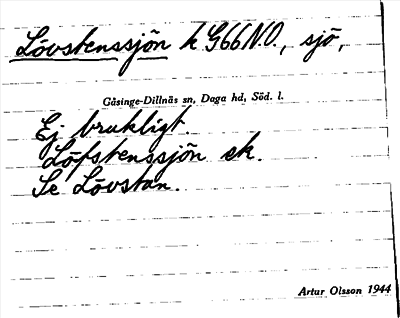 Lövstenssjön k G66 N.O., sjö,
Gåsinge-Dillnäs sn, Daga hd, Söd. l.
Ej brukligt.
Löfstenssjön ek.
Se Lövstan.
Artur Olsson 1944